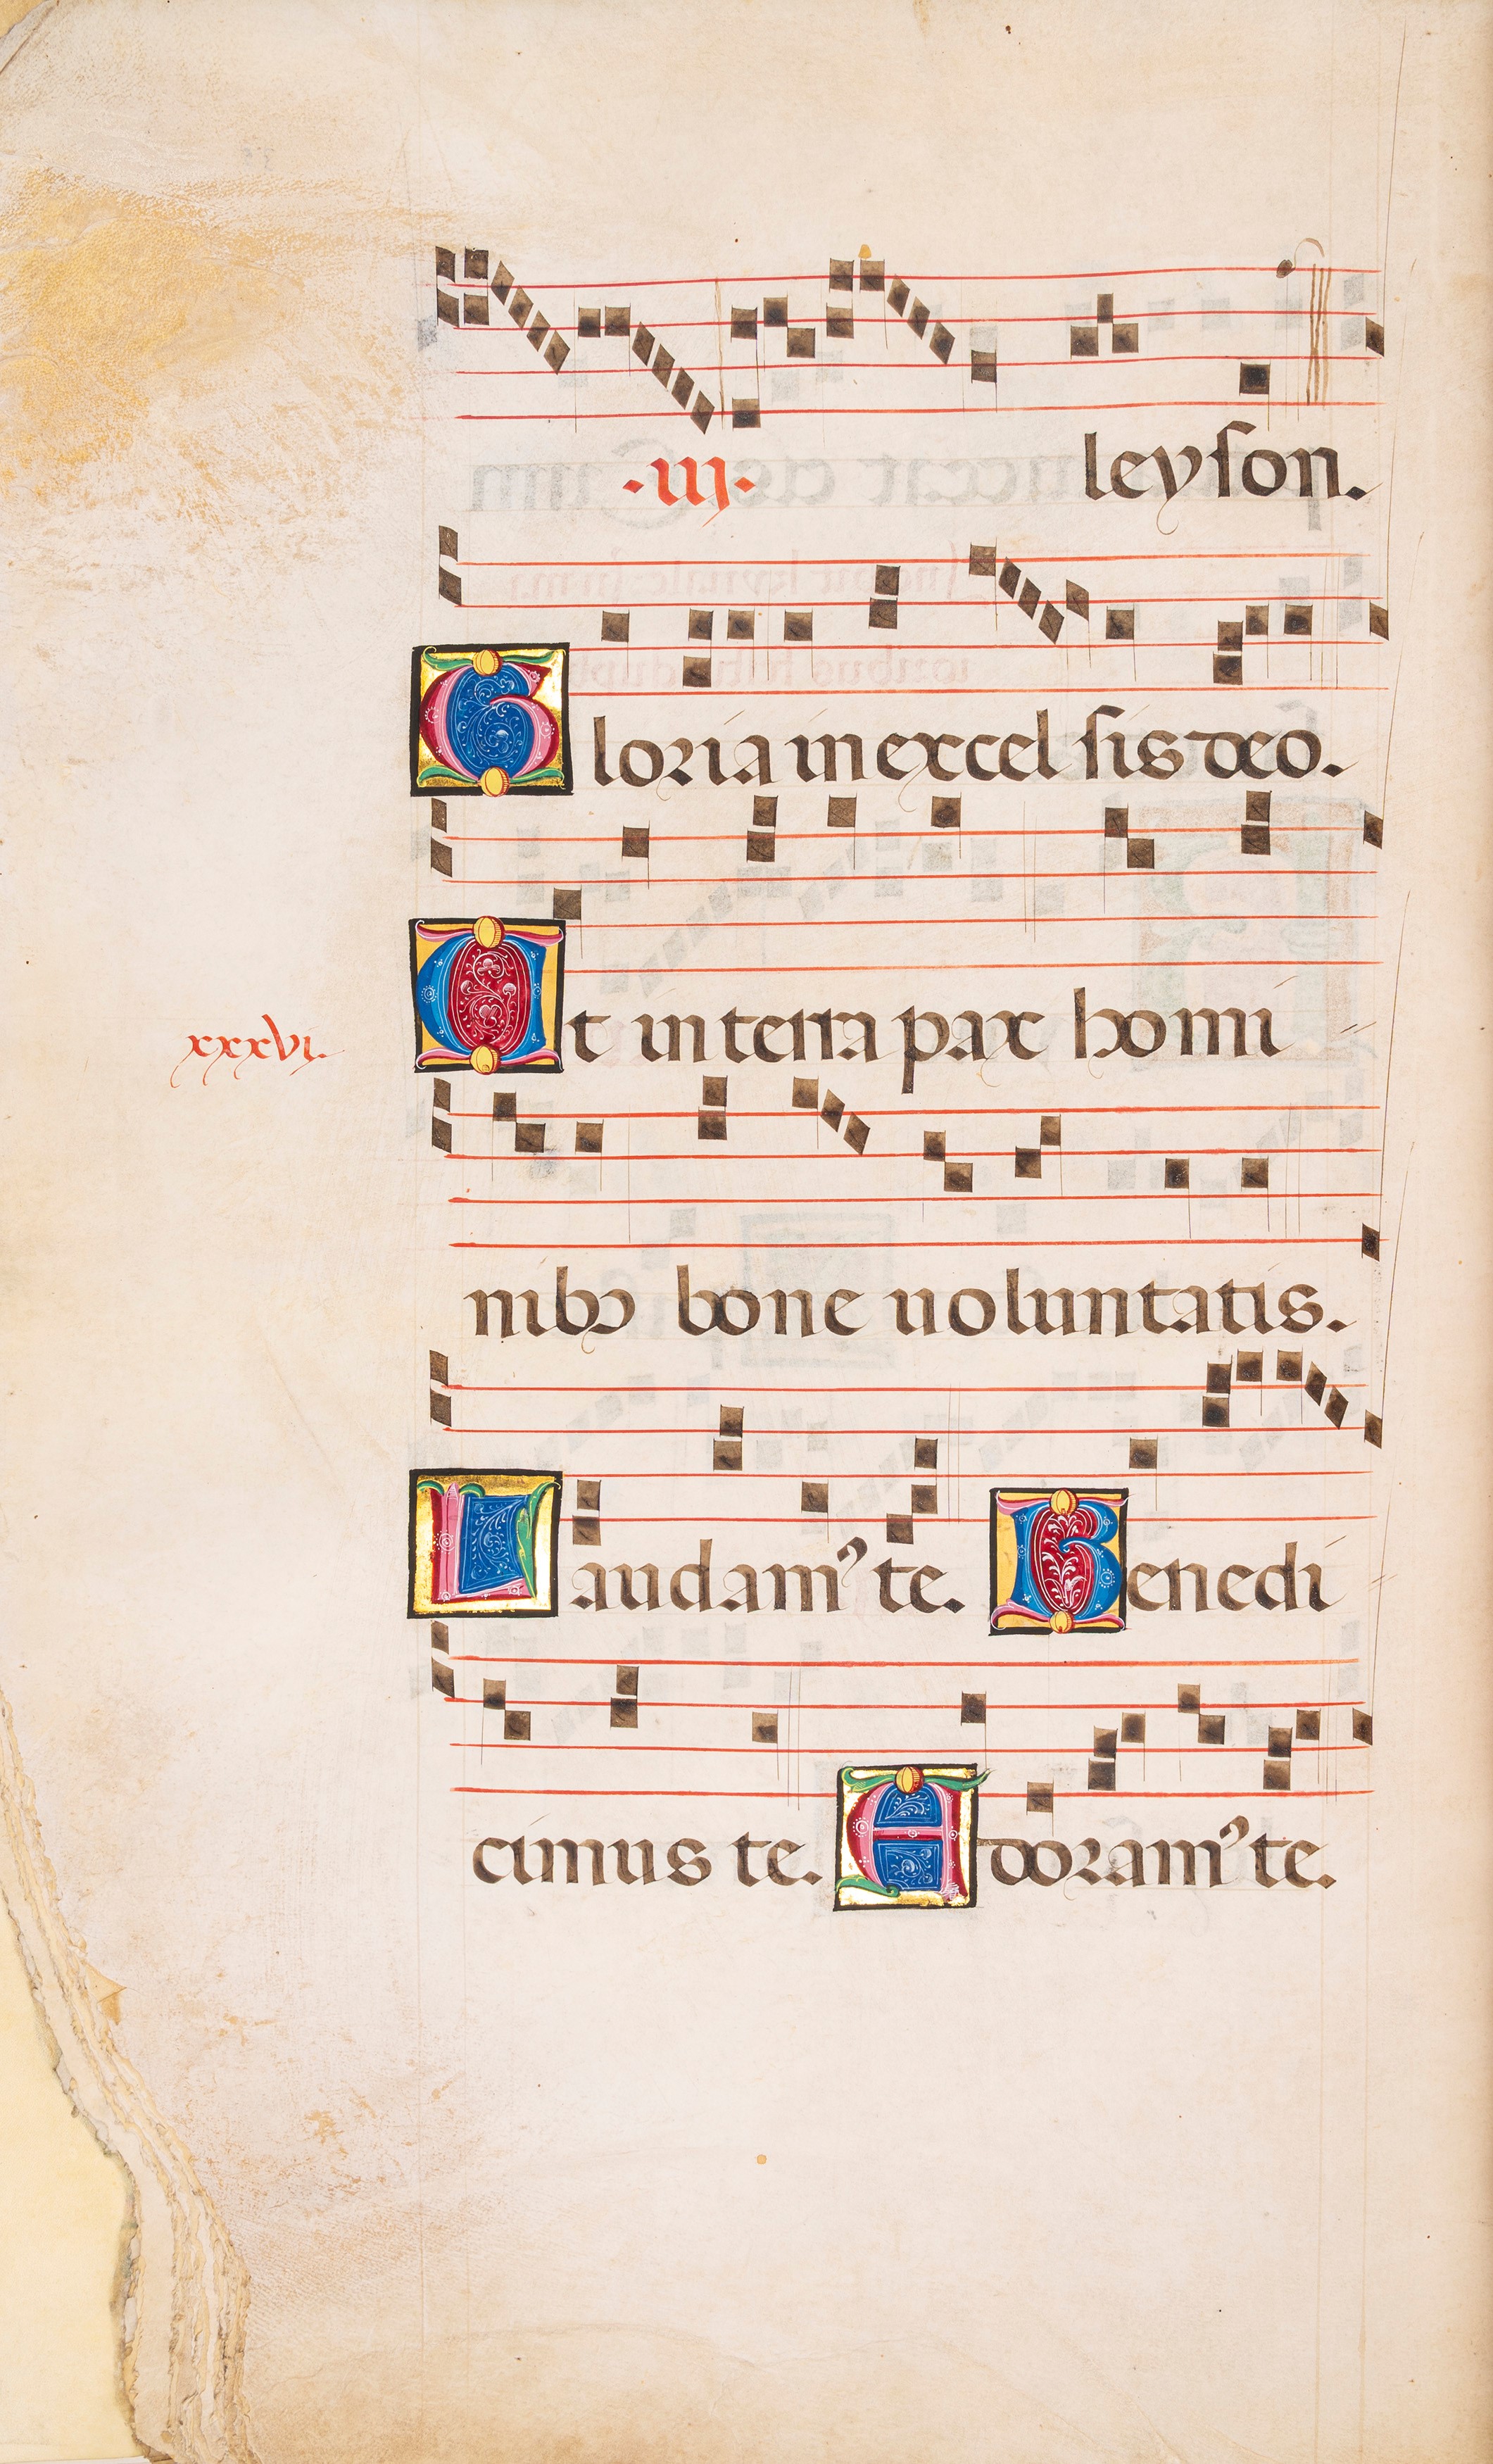 ·iij· leyson.
Gloria in excel sis deo.
Et in terra pax homi
xxxvi.
nibꝰ bone uoluntatis.
Laudamꝰ te. Benedi
cimus te. Adoramꝰ te.